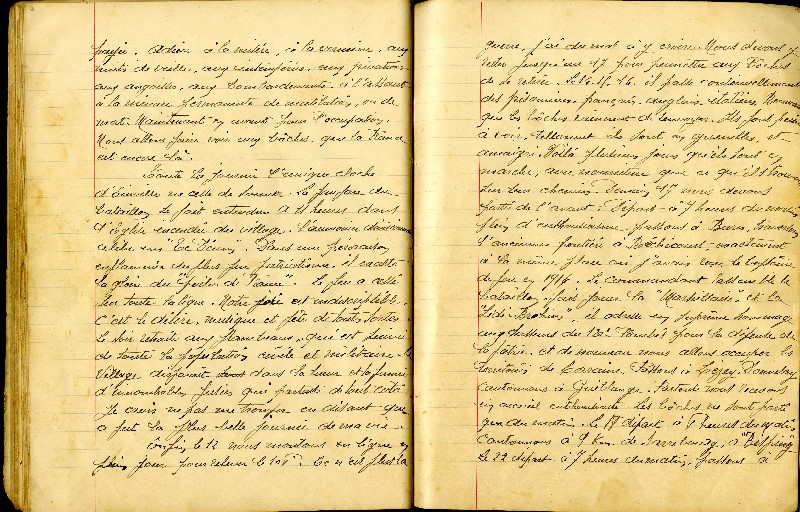 foyer. Adieu à la misère, à la vermine, aux
nuits de veille, aux intempéries, aux privations
aux angoisses, aux bombardements, à l'assaut
à la menace permanente de mutilation, ou de
mort. Maintenant en avant pour l'occupation.
Nous allons faire voir aux bôches, que la France
est encore là.
Toute la journée l'unique cloche
d'Einville ne cesse de sonner. La fanfare du
bataillon se fait entendre à 11 heures dans
l'Eglise encadrée du village. L'aumônier divisionnaire
célèbre un "Te Deum". Dans une péroraison
enflammée du plus pur patriotisme, il exalte
la gloire du "Poilu de France". Le feu a cessé
sur toute la ligne. Notre joie est indescriptible.
C'est le délire, musique et fête de toutes sortes.
Le soir retraite aux flambeaux, qui est suivie
de toute la population civile et militaire. Le
village disparait dans la lueur et la fumée
d'innombrables fusées qui partent de tout côté
Je crois ne pas me tromper en disant que
ce fut la plus belle journée de ma vie.
Enfin le 12 nous montons en ligne en
plein jour pour relever le Ce n'est plus la
guerre, j'ai du mal à y croire. Nous devons y
rester jusqu'au 17 pour permettre aux Bôches
de se retirer. Le 14.15.16. il passe continuellement
des prisonniers français, anglais, italiens, Roumains
que les bôches viennent de renvoyer. Ils font peine
à voir, tellement ils sont en guenilles, et
amaigris. Voilà plusieurs jours qu'ils sont en
marche, sans nourriture que ce qu'ils trouvent
sur leur chemin. Dimanche 17 nous devons
partir de l'avant. Départ à 7 heures du matin
plein d'enthousiasme. passons à Bures, traversons
l'ancienne frontière à Réchicourt
à la même place où j'avais reçu le baptême
du feu en 1916. Le commandant rassemble le
bataillon, fait jouer la "Marseillaise" et la
"Sidi-Brahim" et adresse un suprême hommage
aux chasseurs du tombés pour la défense de
la patrie, et de nouveau nous allons occuper le
territoire de Lorraine. Passons à Lezey,
cantonnons à Guéblange. Partout nous recevons
un accueil enthousiaste. Les bôches ne sont partis
que du matin. Le départ à heures du matin
Cantonnons à 9 Km de Sarrebourg, à
Le 22 départ à 7 heures du matin, passons à